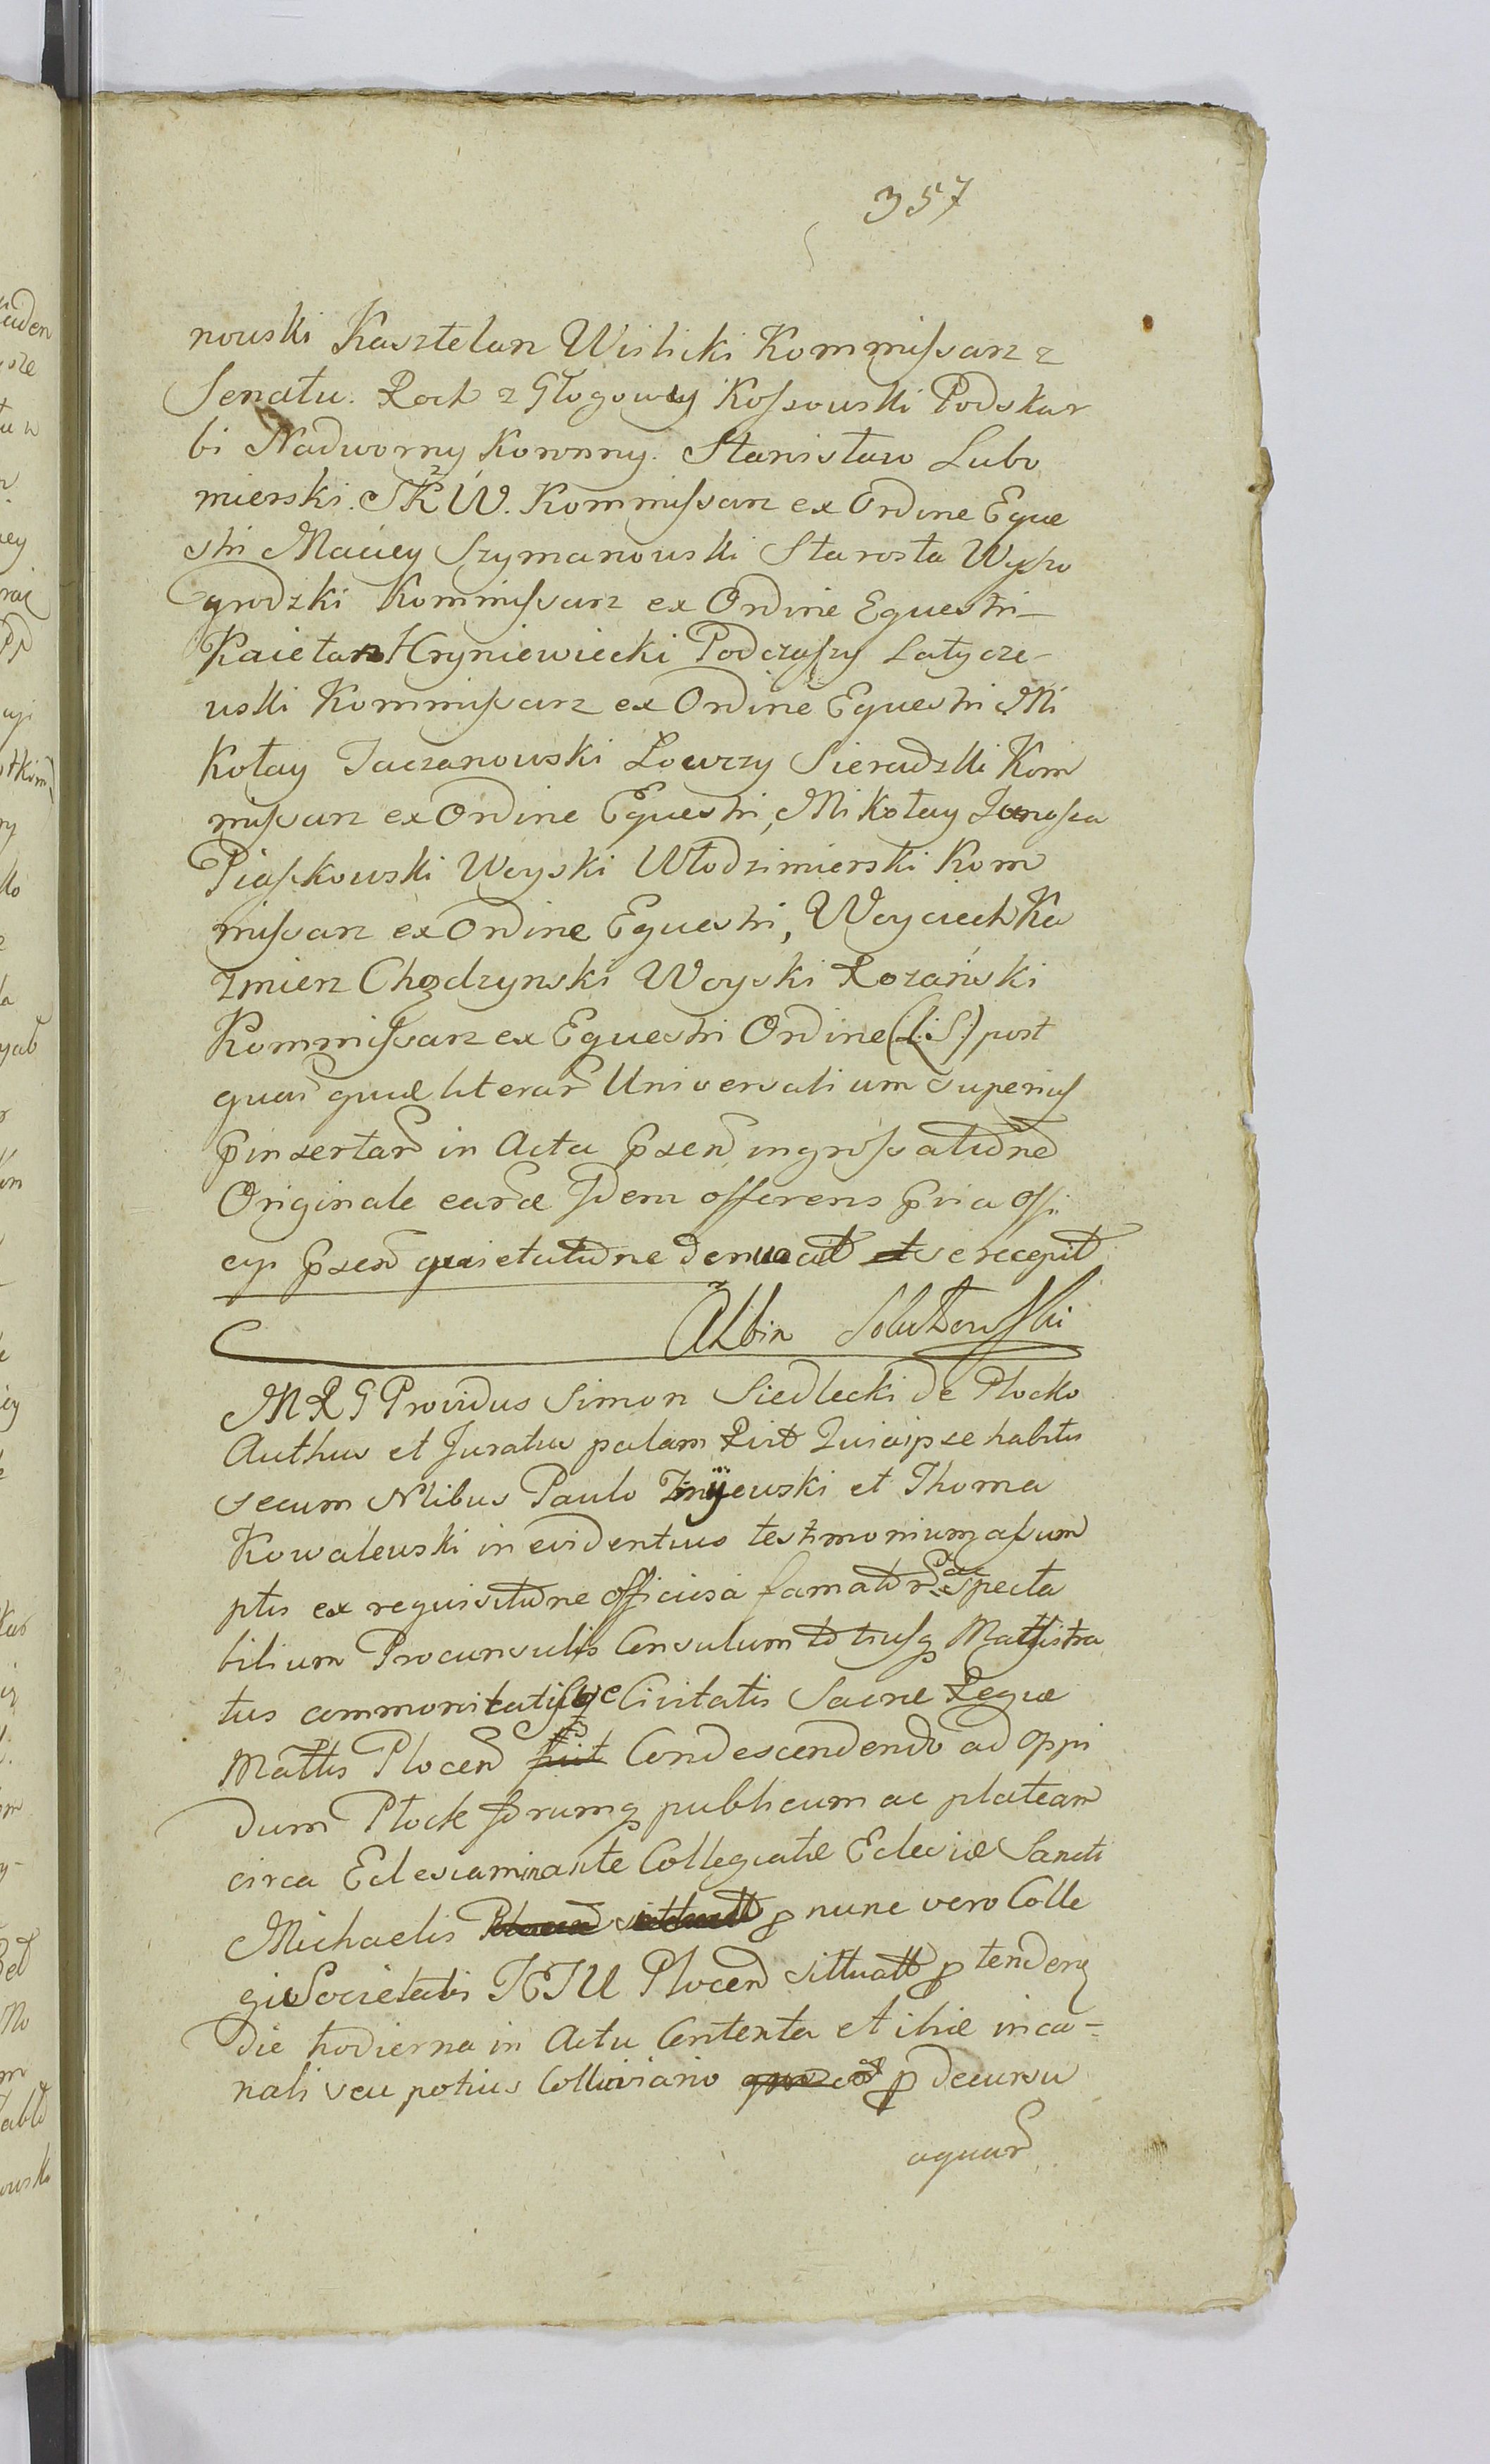 357
nowski Kasztelan Wislicki Kommissarz z
Senatu. Roch z Głogowy Kossowski Podskar
bi Nadworny Koronny. Stanisław Lubo
mierski. S K W. Kommissarz ex Ordine Eque
stri Maciey Szymanowski Starosta Wyszo
grodzki Kommissarz ex Ordine Equestri
Kaietan Hryniewiecki Podczaszy Latycze-
wski Kommissarz ex Ordine Equestri Mi
kołay Taczanowski Łowczy Sieradzki Kom
missarz ex Ordine Equestri, Mikołay Junosza
Piaskowski Woyski Włodzimierski Kom
missarz ex Ordine Equestri, Woyciech Ka
zmierz Chądzynski Woyski Rozański
Kommissarz ex Equestri Ordine (L:S:) post
quar quæ literar Universalium superius
pinsertar in Acta psen ingrossatidne
Originale earde Idem offerens pvia offi
cyi psen quietatidne denuo ad se recepit
Albin Sobutkowski
M R G Providus Simon Siedlecki de Plocko
Authus et Juratus palam Rivit Quia ipse habitis
secum Nlibus Paulo Zmijewski et Thoma
Kowalewski in evidentius testimonium assum
ptis ex requisitidne officiosa famat r. ac specta
bilium Proconsulis Consulum totiusq Magistra
tus ammonitatisqe Civitatis Sacræ Regiæ
Mattis Plocen Condescendendo ad oppi
dum Plock forumq publicum ac plateam
circa Eclesiam ante Collegiatæ Eclesiæ Sancti
Michaelis p nunc vero Colle
gii Societatis JESU Plocen sittuatt p tenden
die hodierna in Actu Contenta et ibiæ in ca-
nali seu potius Colluviario p decursu
aquar